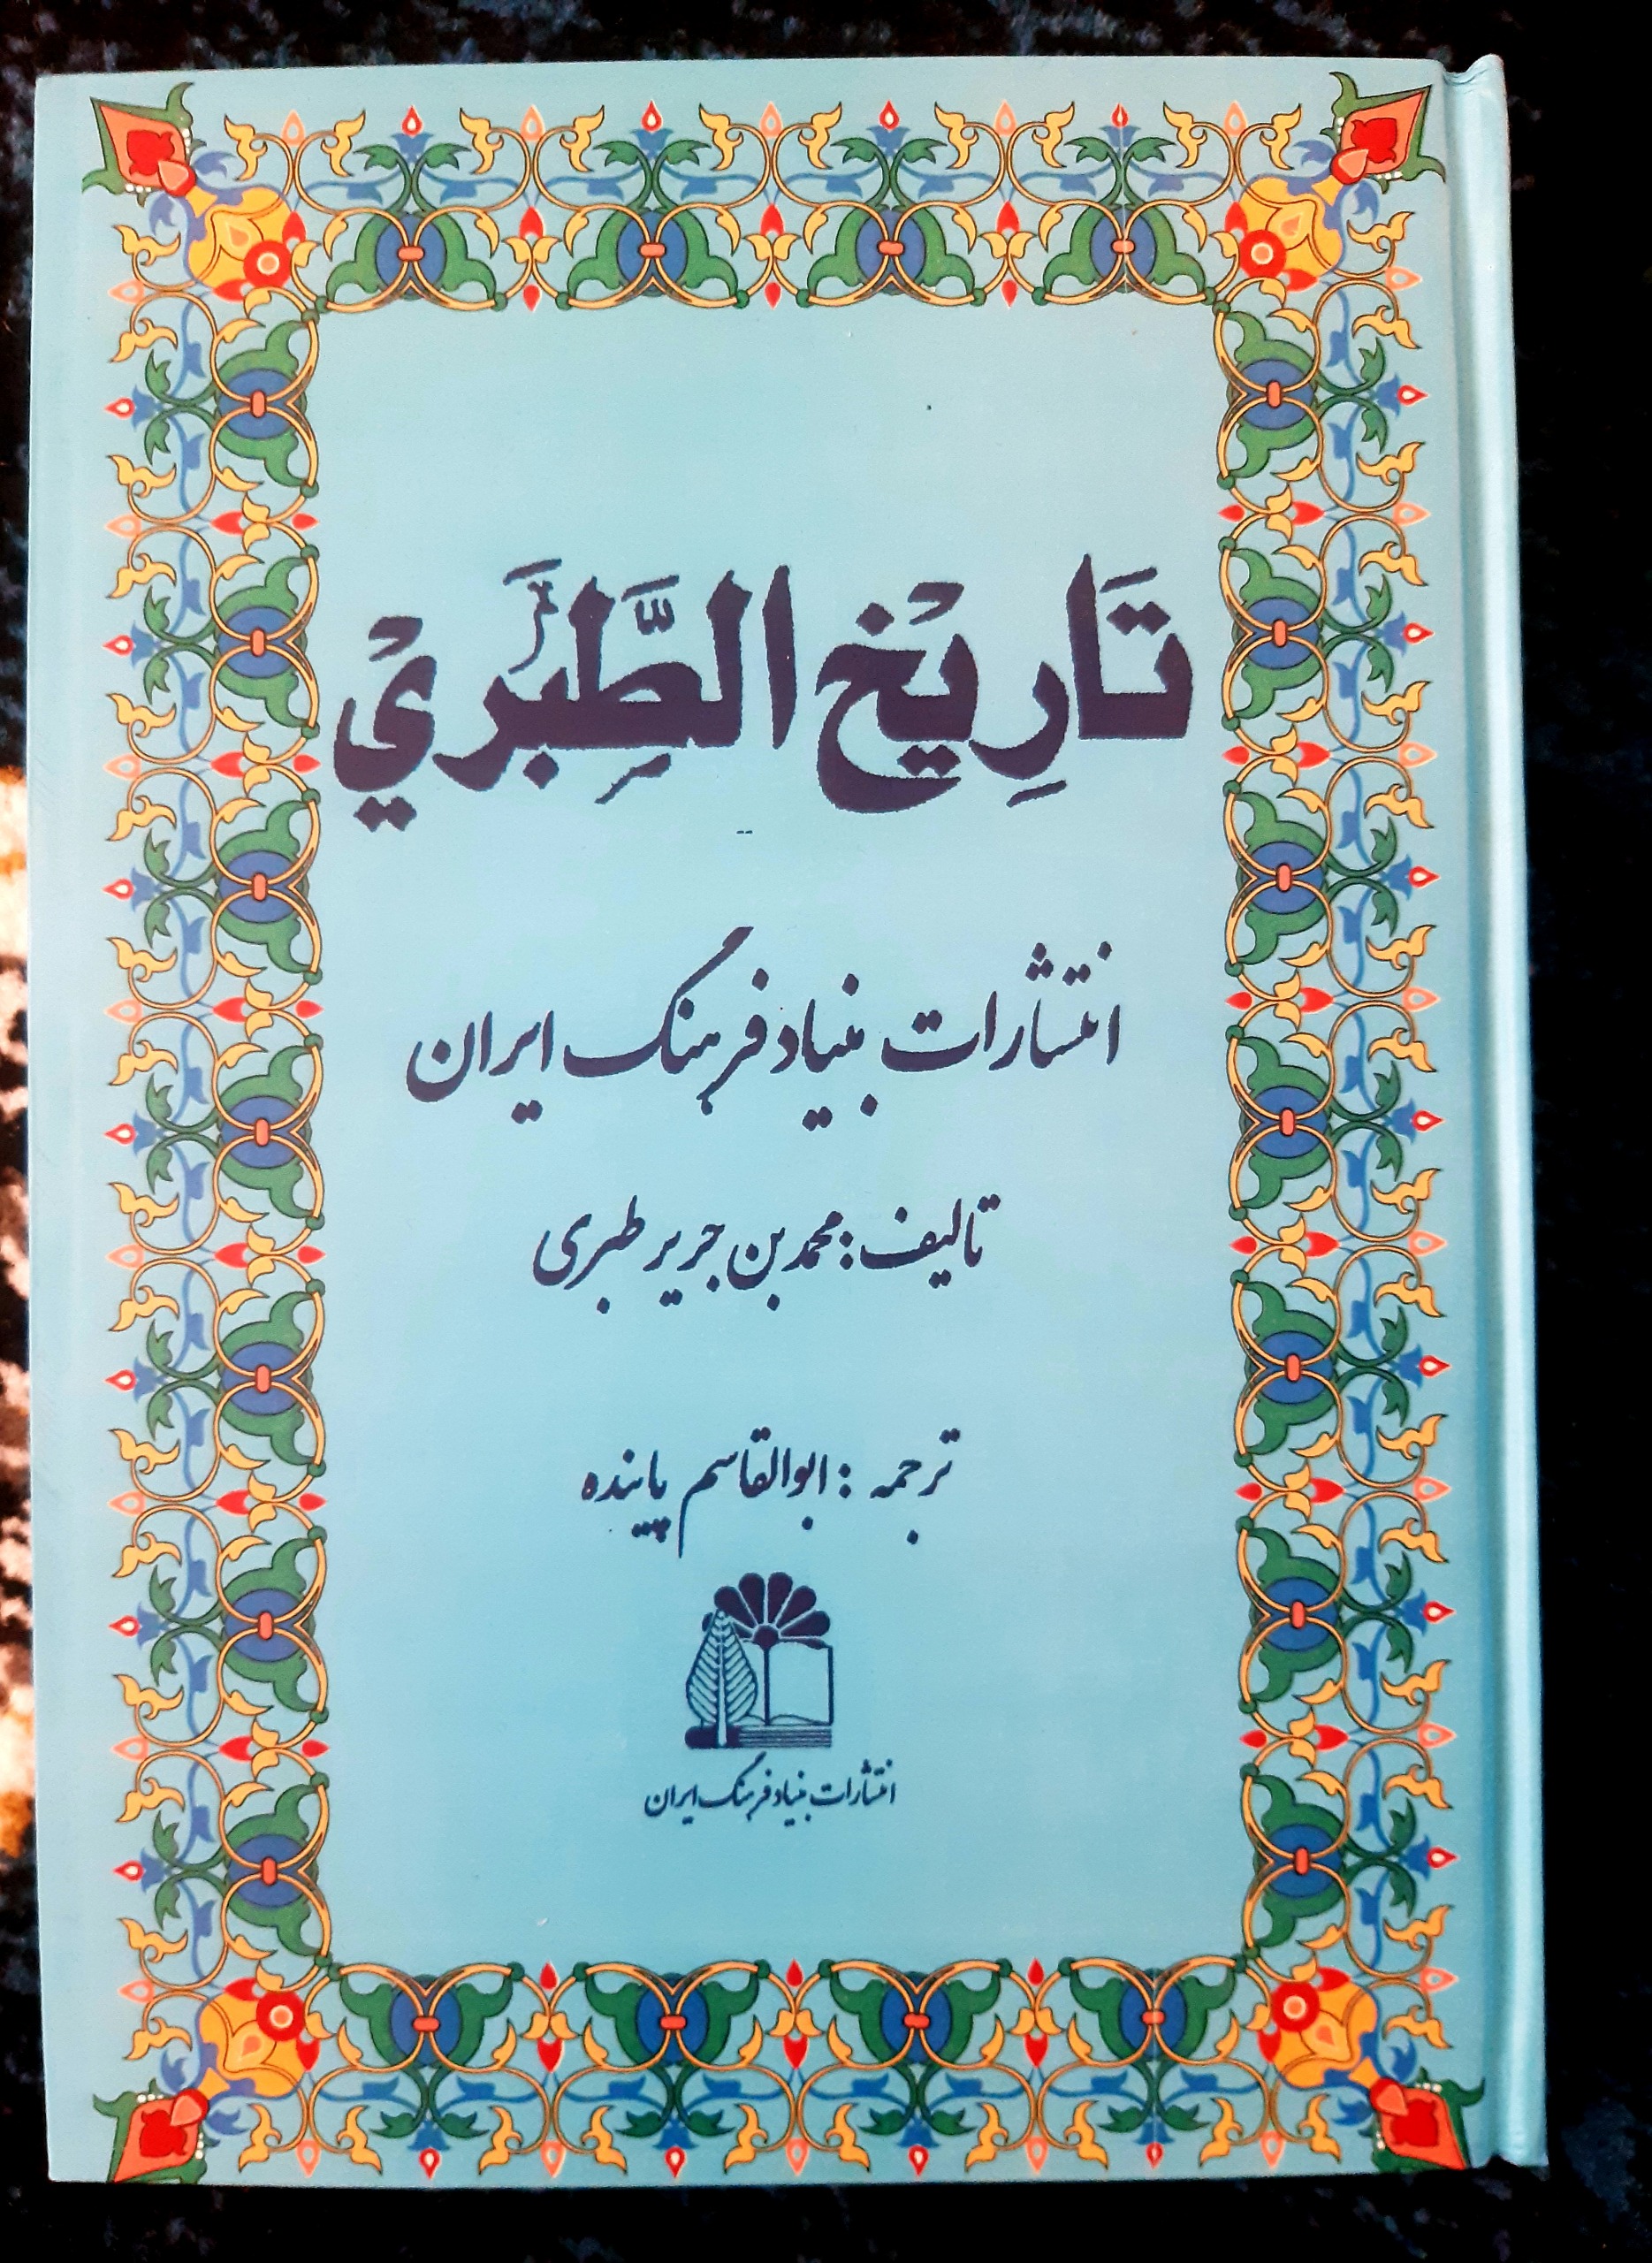 تَارِيْخ الطَّبَرِيْ
انتشارات بنیاد فرهنگ ایران
تالیف: محمد بن جریر طبری
ترجمه: ابوالقاسم پاینده
انتشارات بنیاد فرهنگ ایران